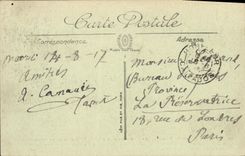 Carte Postale
Correspondance
Adresse
Mardi 14-8-17
Amitiés
Monsieur
(Bureau des
Province)
La Préservatrice
18, rue de Londres
Paris